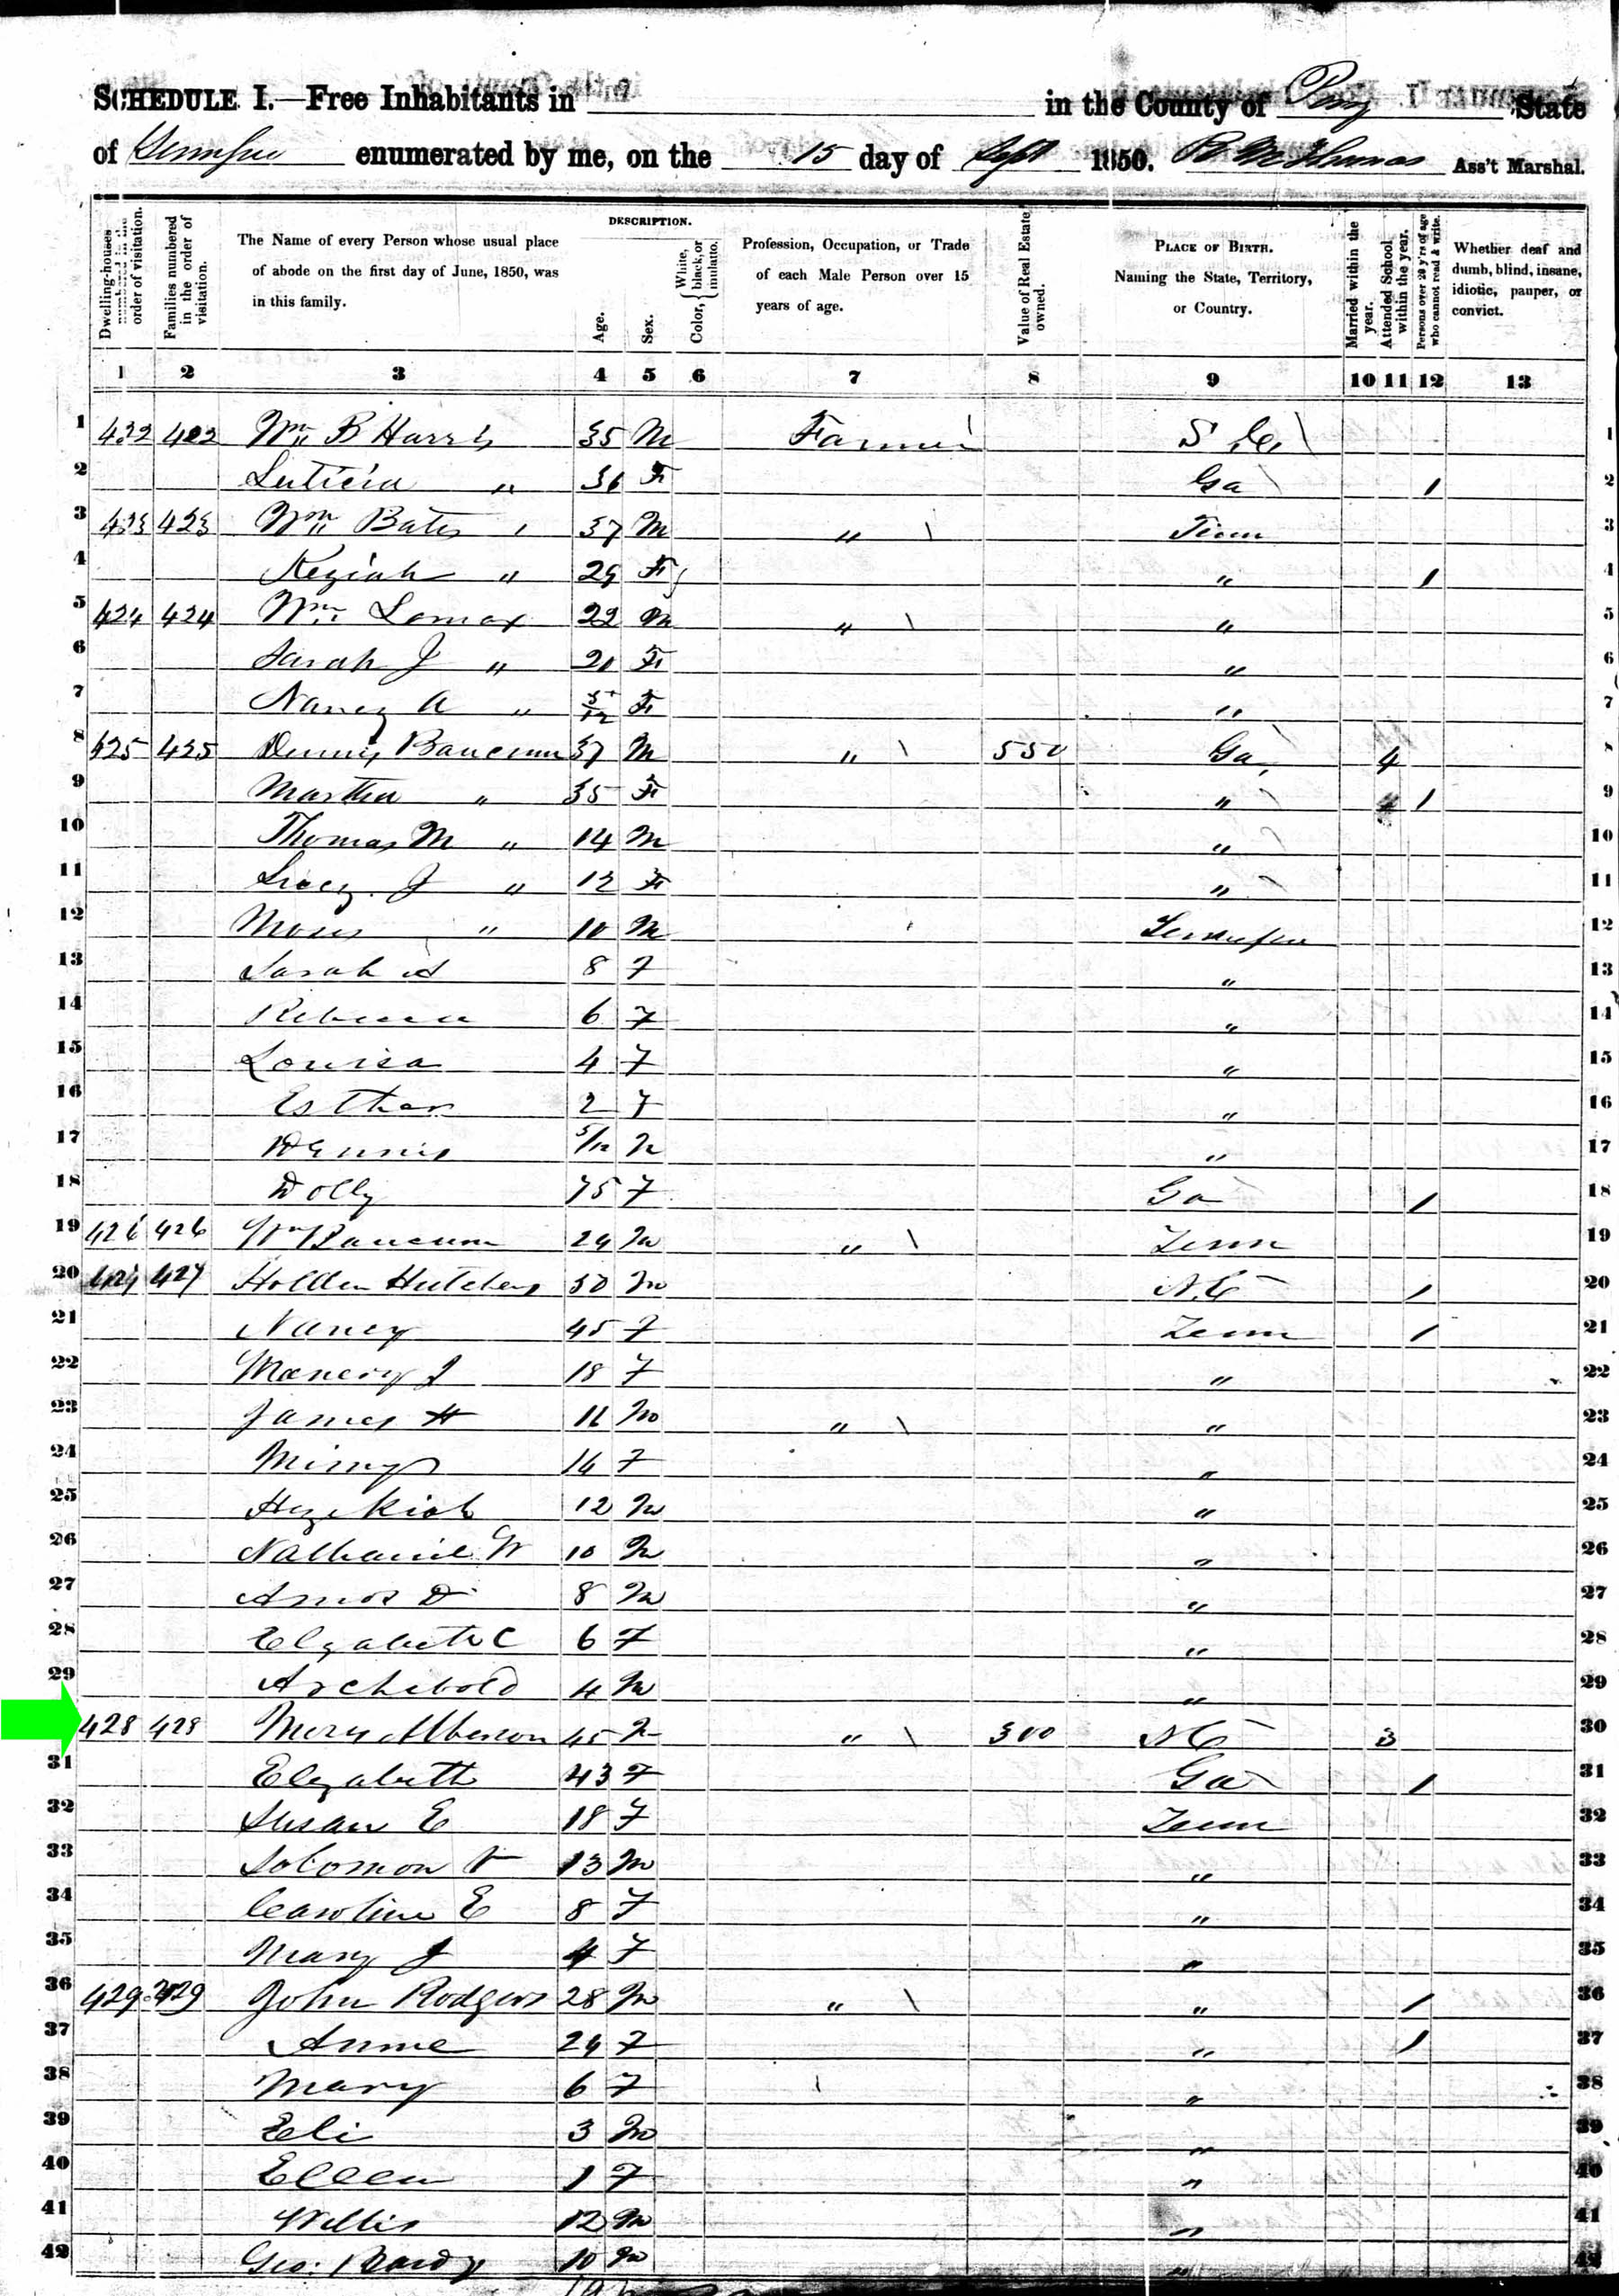 SCHEDULE I.—Free Inhabitants in in the County of Perry State
of Tennessee enumerated by me, on the 15 day of Sept 1850. Ass't Marshal.
Dwelling-houses numbered in the order of visitation.
Families numbered in the order of visitation.
The Name of every Person whose usual place of abode on the first day of June, 1850, was in this family.
DESCRIPTION.
Age.
Sex.
Color, { White, black, or mulatto.
Profession, Occupation, or Trade of each Male Person over 15 years of age.
Value of Real Estate owned.
PLACE OF BIRTH. Naming the State, Territory, or Country.
Married within the year.
Attended School within the year.
Persons over 20 y'rs of age who cannot read & write.
Whether deaf and dumb, blind, insane, idiotic, pauper, or convict.
1 2 3 4 5 6 7 8 9 10 11 12 13
1 432 422 Wm B Harris 35 M Farmer S C 1
2 Luticia " 36 F Ga / 2
3 423 423 Wm Bates 37 M " Tenn 3
4 Keziah " 29 F " / 4
5 424 424 Wm Lomax 22 M " " 5
6 Sarah J " 20 F " 6
7 Nancy A " 5/12 F " 7
8 425 425 Dennis Baucum 37 M " 550 Ga 4 8
9 Martha " 35 F " / 9
10 Thomas M " 14 M " 10
11 J " 12 F " 11
12 Moses " 10 M Tennessee 12
13 Sarah A 8 F " 13
14 Rebecca 6 F " 14
15 Louisa 4 F " 15
16 Esther 2 F " 16
17 Dennis 5/12 M " 17
18 Dolly 75 F Ga / 18
19 426 426 Wm Baucum 24 M " Tenn 19
20 427 427 Holden Hutchens 50 M N.C / 20
21 Nancy 45 F Tenn / 21
22 J 18 F " 22
23 James H 16 M " " 23
24 14 F " 24
25 Hezekiah 12 M " 25
26 Nathaniel W 10 M " 26
27 Amos D 8 M " 27
28 Elyabeth C 6 F " 28
29 Archebold 4 M " 29
30 428 428 45 M " 300 N C 3 30
31 Elyabeth 43 F Ga / 31
32 Susan E 18 F Tenn 32
33 Solomon 13 M " 33
34 Caroline E 8 F " 34
35 Mary J 4 F " 35
36 429 429 John Rodgers 28 M " " / 36
37 Anne 24 F " / 37
38 Mary 6 F " 38
39 Eli 3 M " 39
40 Ellen 1 F " 40
41 Willis 12 M " 41
42 Geo: 10 M " 42